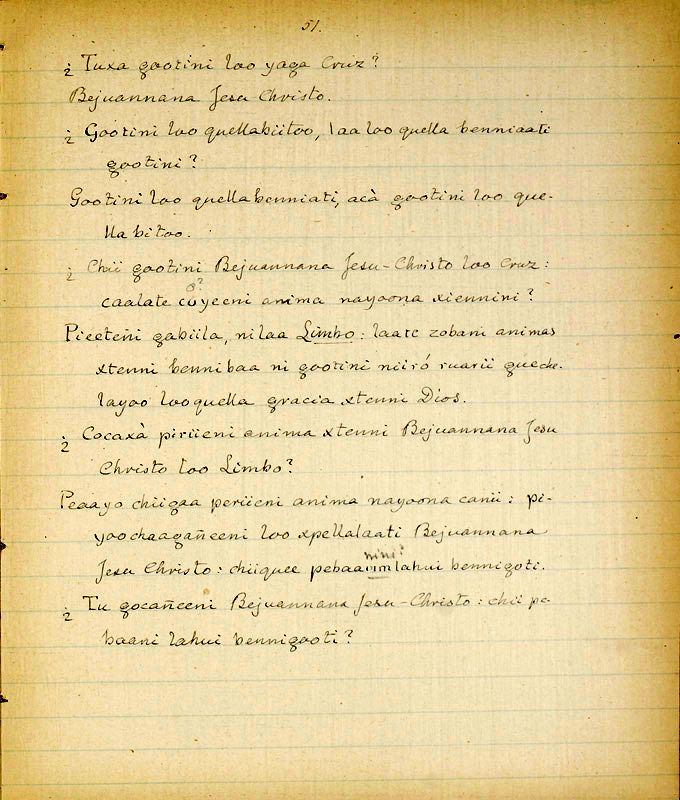 51.
¿ Tuxa gootini loo yaga Cruz?
Bejuannana Jesu Christo.
¿ Gootini loo quellabiitoo, laa loo quella benniaati
gootini?
Gootini loo quellabenniati, acà gootini loo que-
lla bitoo.
¿ Chii gootini Bejuannana Jesu-Christo loo Cruz:
o?
caalate cuyeeni anima nayoona xiennini?
Pieeteni gabiila, ni laa Limbo: laate zobani animas
xtenni bennibaa ni gootini niiró ruarii queche-
layoo looquella gracia xtenni Dios.
¿ Cocaxà piriieni anima xtenni Bejuannana Jesu
Christo loo Limbo?
Peaayo chiigaa periieni anima nayoona canii: pi-
yoochaagañeeni loo xpellalaati Bejuannana
nini?
Jesu Christo: chiiquee pebaanimlahui bennigoti.
¿ Tu gocañeeni Bejuannana Jesu-Christo: chii pe-
baani lahui bennigooti?